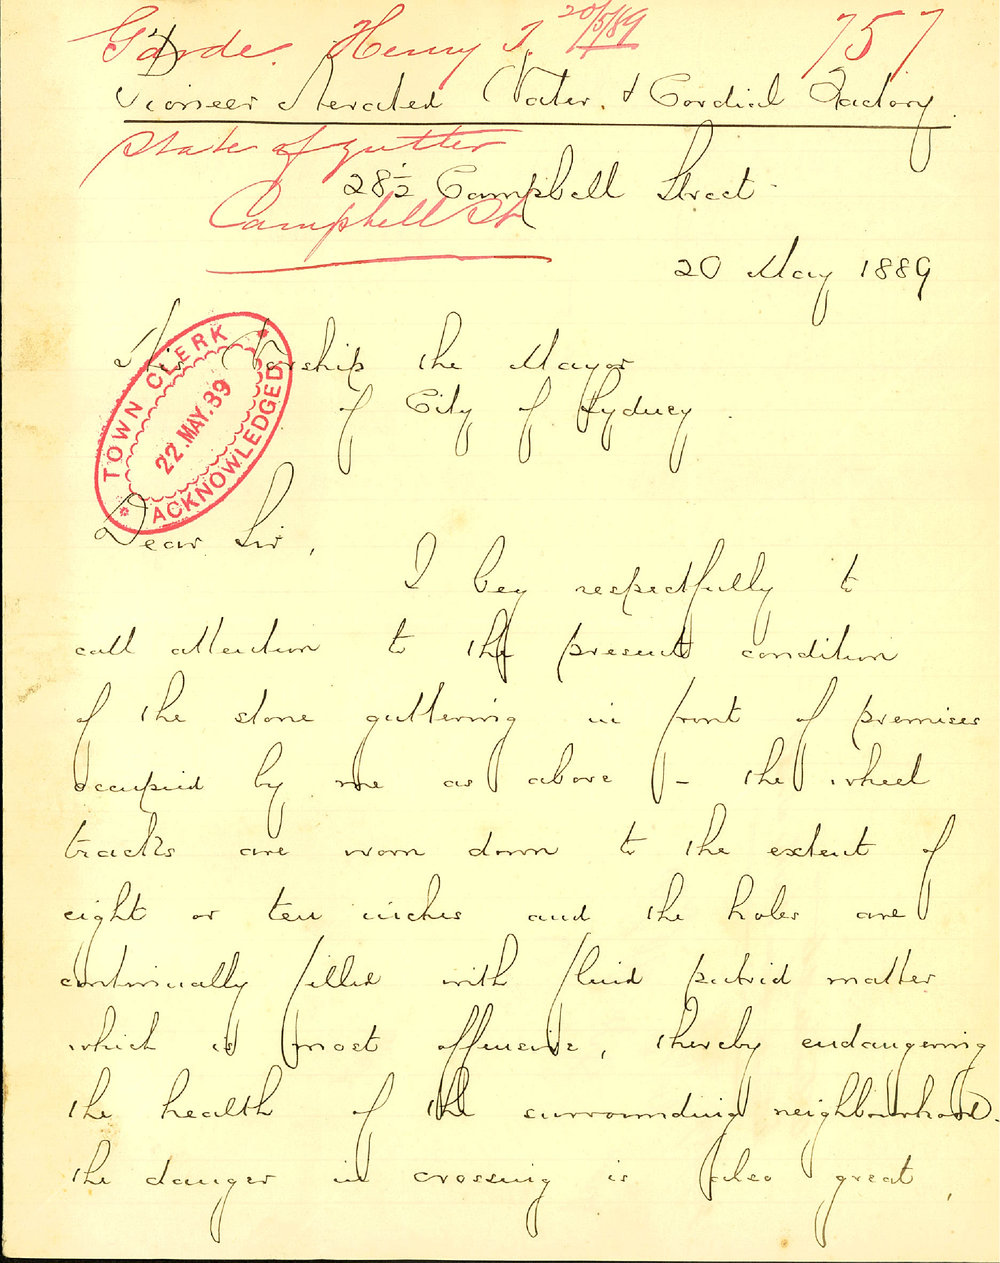 Garde. Henry J. 20/5/89 757
Pioneer Aerated Water. & Cordial Factory.
State of gutter
28½ Campbell Street
Campbell St
20 May 1889
TOWN CLERK
22. MAY. 89
ACKNOWLEDGED
His Worship the Mayor
of City of Sydney.
Dear Sir,
I beg respectfully to
call attention to the present condition
of the stone guttering in front of premises
occupied by me as above – the wheel
tracks are worn down to the extent of
eight or ten inches and the holes are
continually filled with fluid putrid matter
which is most offensive, thereby endangering
the health of the surrounding neighbourhood.
the danger in crossing is also great,